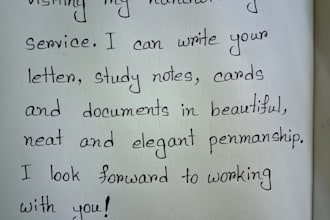 my
service. I can write your
letter, study notes, cards
and documents in beautiful,
neat and elegant penmanship.
I look forward to working
with you!